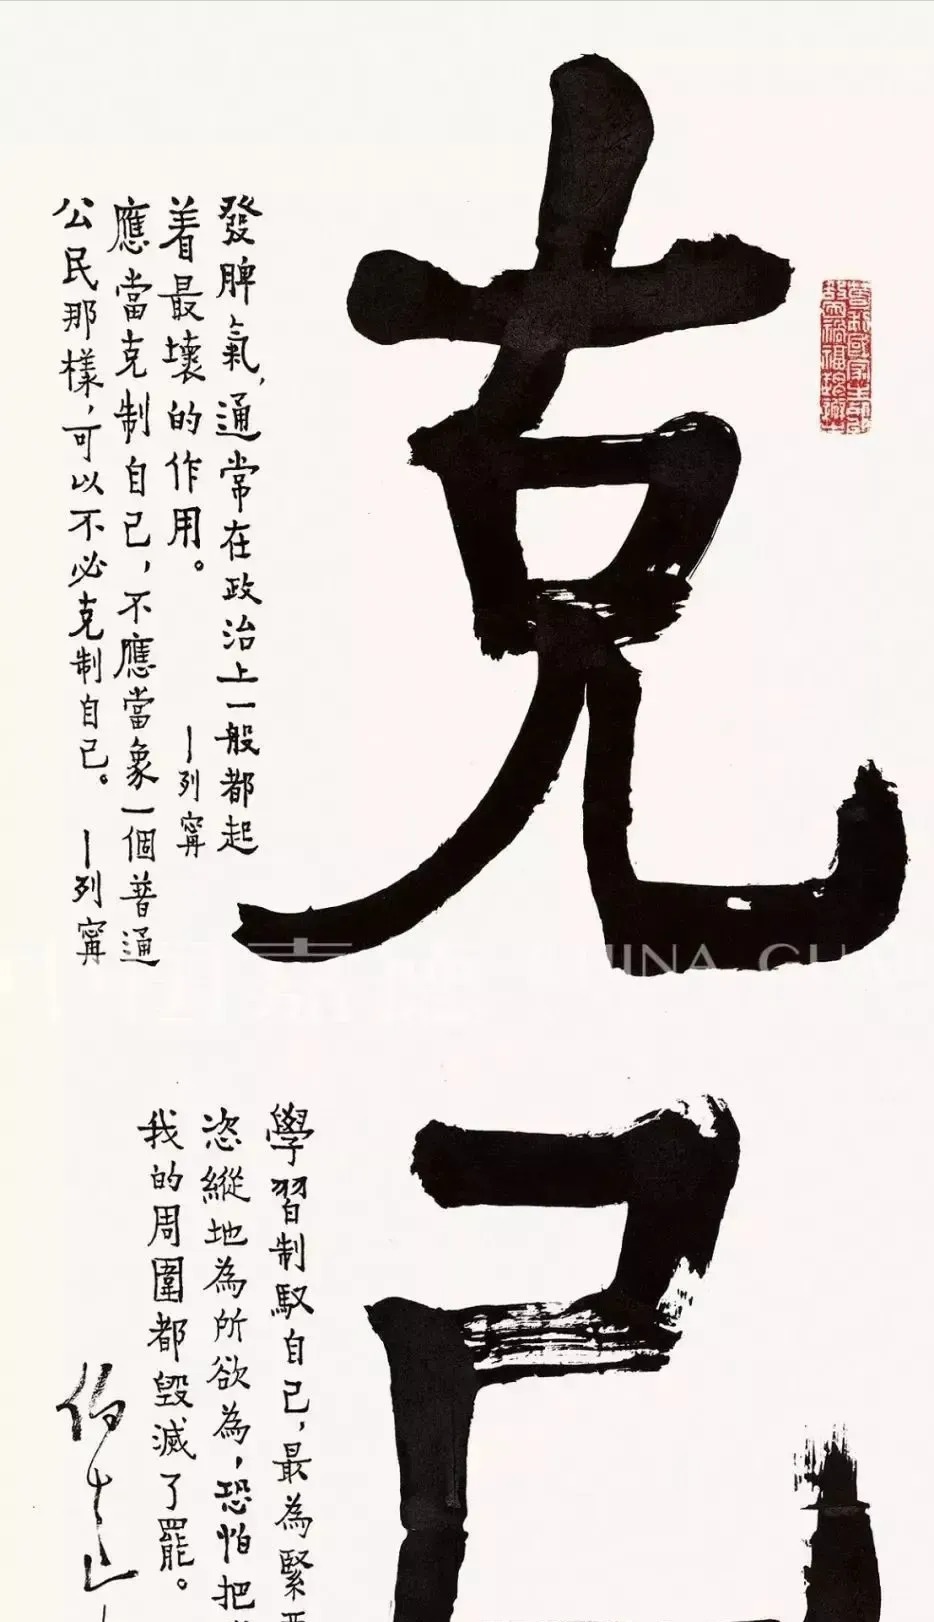 克己
發脾氣，通常在政治上一般都起
着最壞的作用。
—列寧
應當克制自己，不應當象一個普通
公民那樣，可以不必克制自己。—列寧
學習制馭自己，最為緊
恣縱地為所欲為，恐怕把
我的周圍都毀滅了罷。
CHINA GU